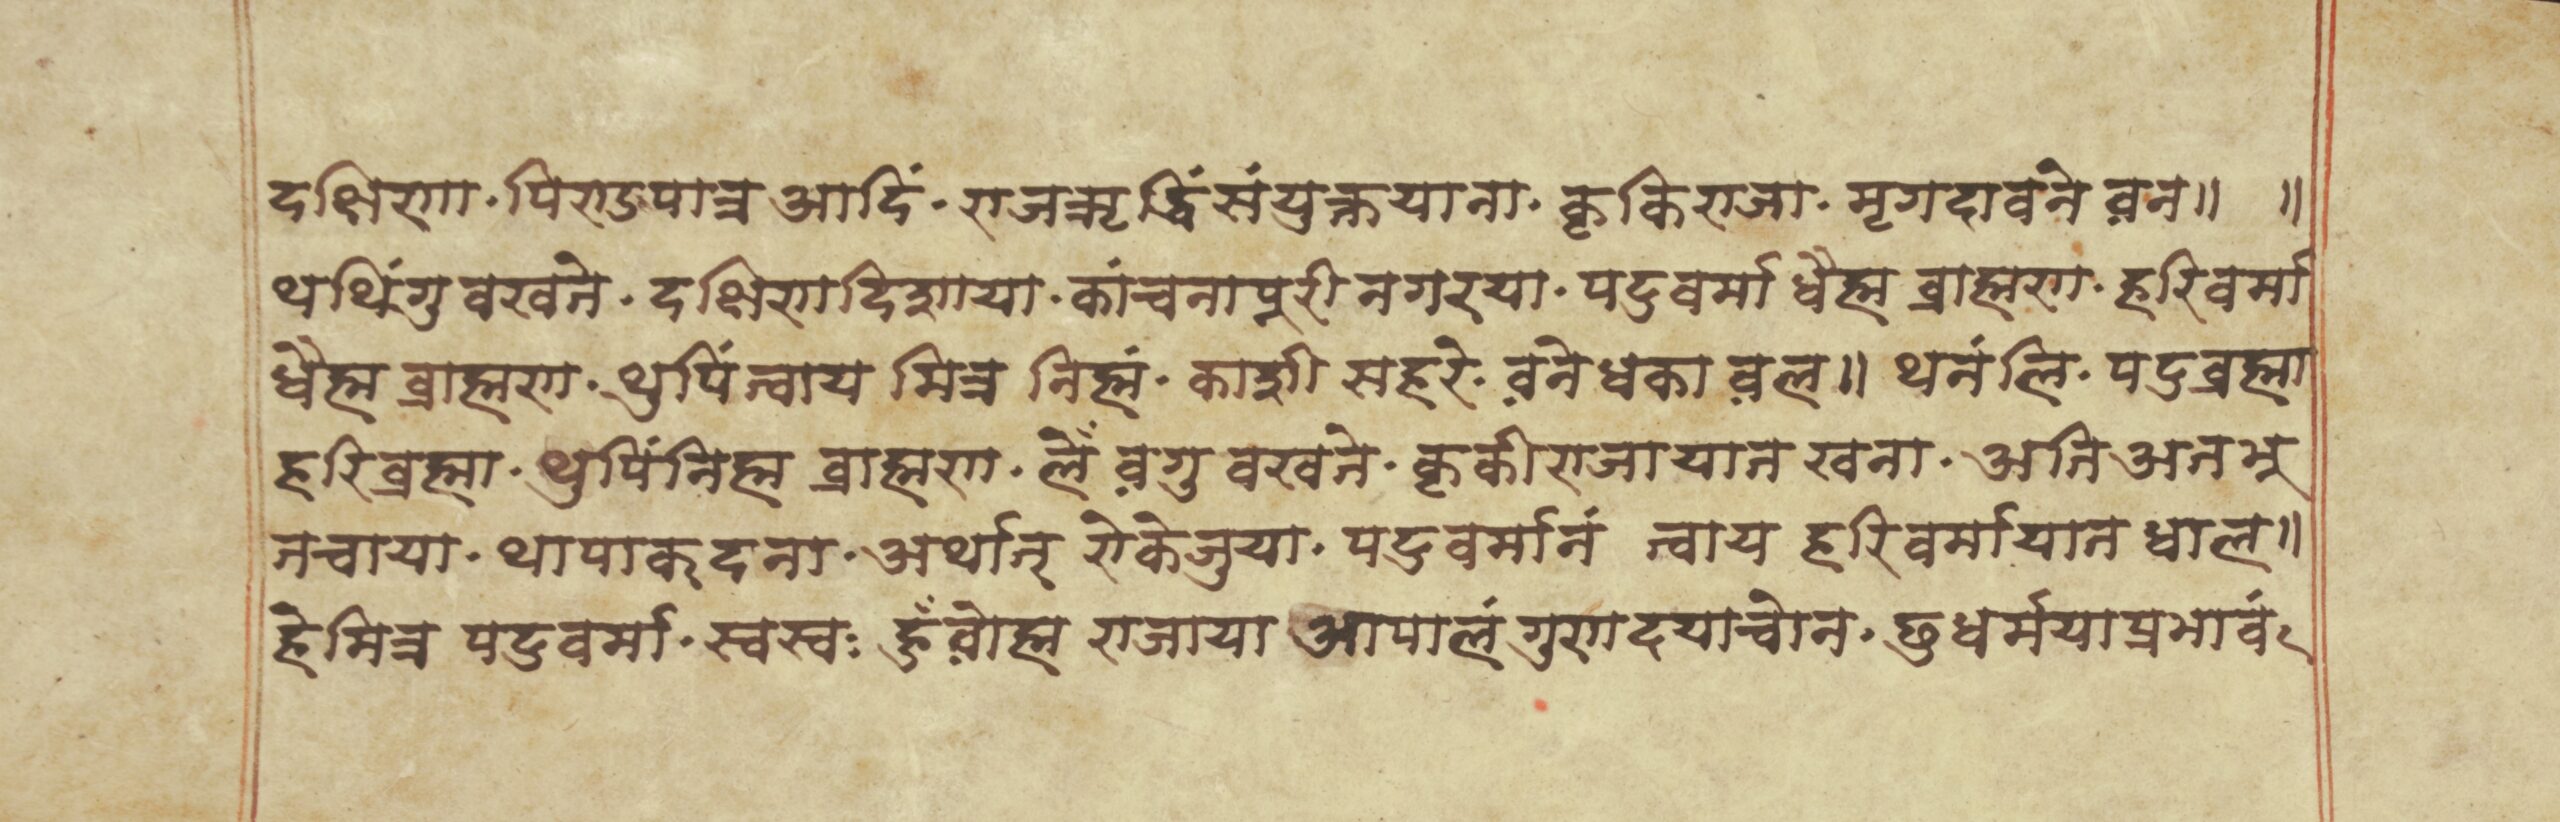 दक्षिणा॰ पिण्डपात्र आदिं॰ राजऋद्धिं संयुक्तयाना॰ कृकिराजा॰ मृगदावने व़न॥ ॥
थथिंगु वखते॰ दक्षिणदिशाया॰ कांचनापूरी नगरया॰ पदुवर्मा धैह्म ब्राह्मण॰ हरिवर्मा
धैह्म ब्राह्मण॰ थुपिं त्वाय मित्र निह्मं॰ काशी सहरे॰ व़ने धका व़ल॥ थनंलि॰ पदुब्रह्मा
हरिब्रह्मा॰ थुपिंनिह्म ब्राह्मण॰ लँे व़गु वखते॰ कृकीराजायात खना॰ अति अतभू
तचाया॰ थापाक् दना॰ अर्थात् रोकेजुया॰ पदुवर्मानं त्वाय हरिवर्मायात धाल॥
हे मित्र पदुवर्मा॰ स्वस्वः हुँ व़ोह्म राजाया आपालं गुणदयाचोन॰ छु धर्मयाप्रभावं